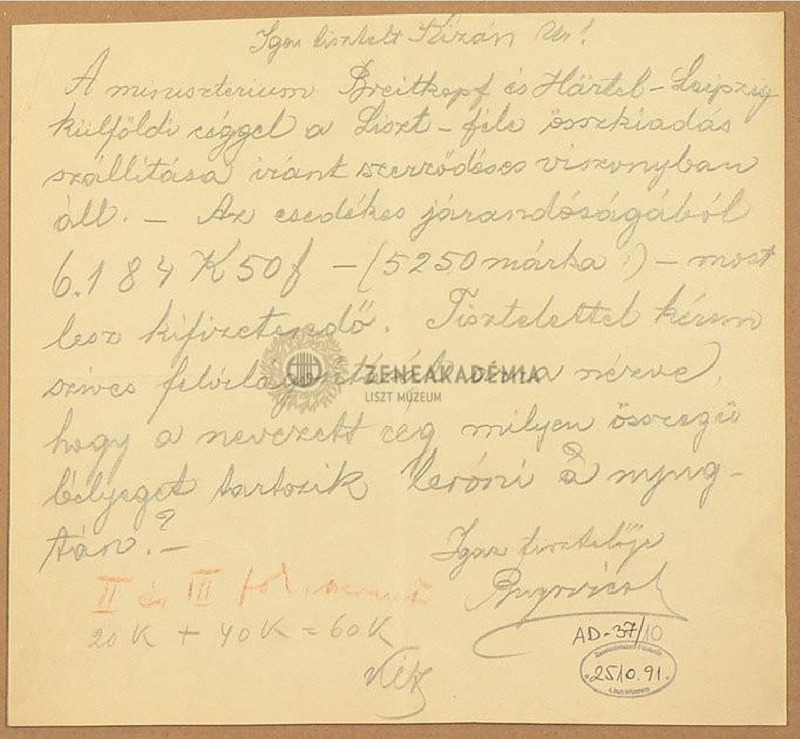 Igen tisztelt Kizán Úr!
A miniszterium Breitkopf és Härtel – Leipzig
külföldi céggel a Liszt – féle összkiadás
szállítása iránt szerződéses viszonyban
áll. – Az esedékes járandóságából
6.184 K 50 f – (5250 márka :) – most
lesz kifizetendő. Tisztelettel kérem
szives arra nézve,
hogy a nevezett cég milyen összegü
bélyeget tartozik leróni a nyug-
tán.? –
Igaz tisztelője
II és III fok szerint
20 K + 40 K = 60 K
AD-37/10
25 10. 91.
LISZT MÚZEUM
ZENEAKADÉMIA
LISZT MÚZEUM